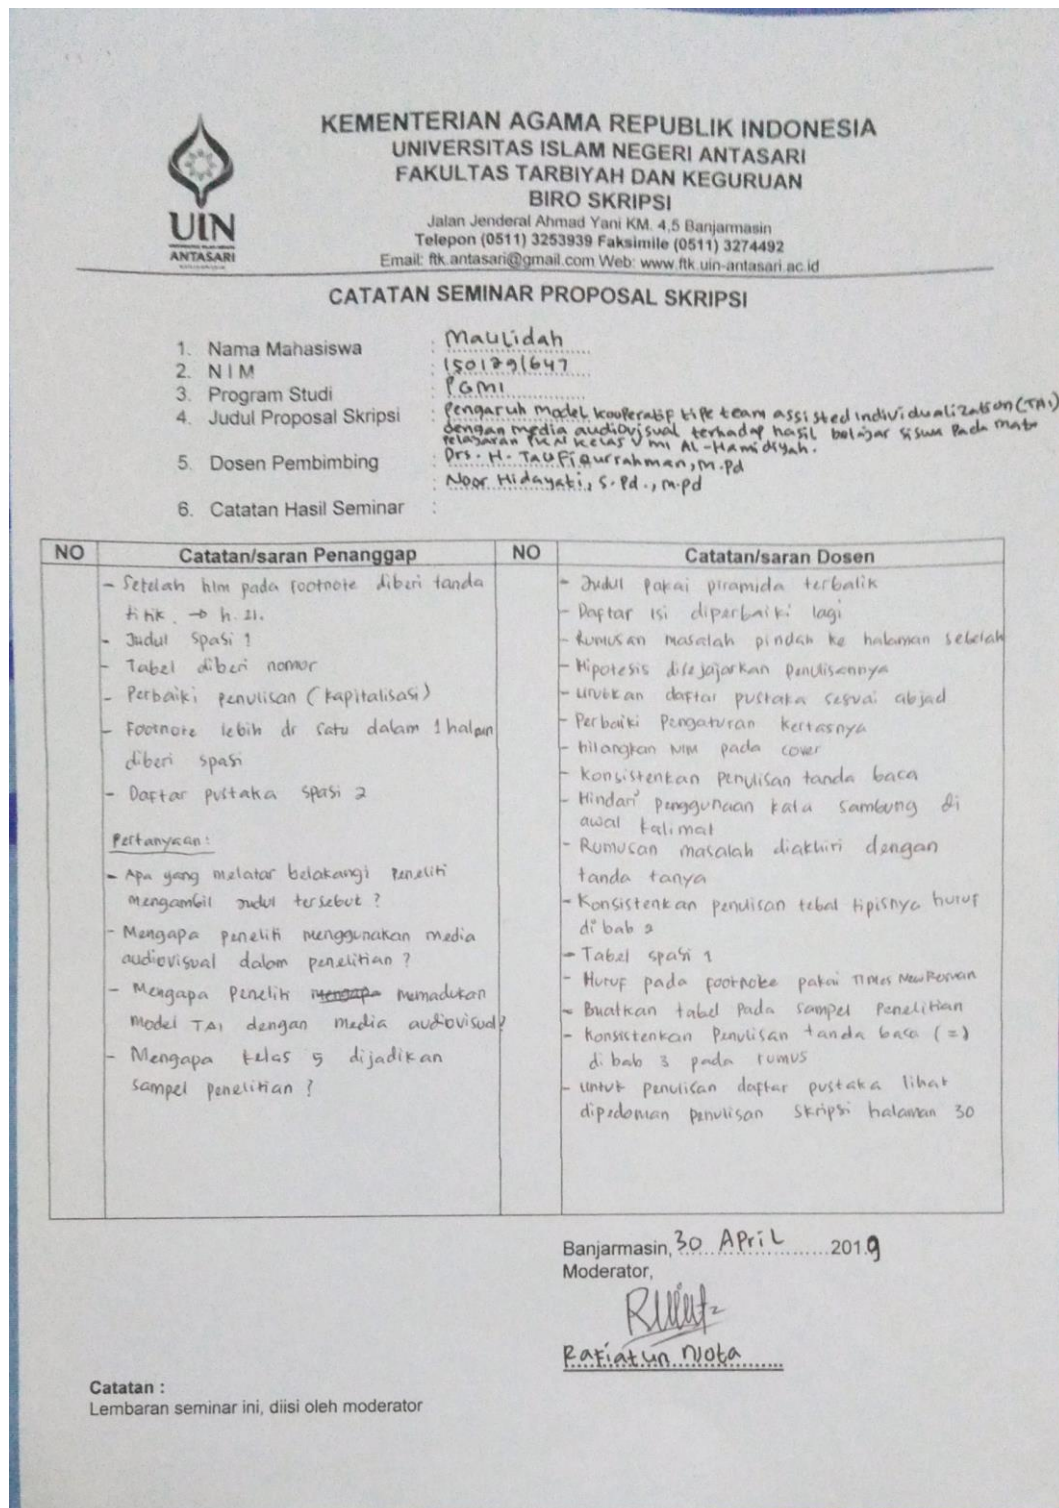 KEMENTERIAN AGAMA REPUBLIK INDONESIA
UNIVERSITAS ISLAM NEGERI ANTASARI
FAKULTAS TARBIYAH DAN KEGURUAN
BIRO SKRIPSI
Jalan Jenderal Ahmad Yani KM. 4,5 Banjarmasin
Telepon (0511) 3253939 Faksimile (0511) 3274492
Email: ftk.antasari@gmail.com Web: www.ftk.uin-antasari.ac.id
UIN
ANTASARI
CATATAN SEMINAR PROPOSAL SKRIPSI
1. Nama Mahasiswa : Maulidah
2. NIM : 1501291647
3. Program Studi : PGMI
4. Judul Proposal Skripsi : Pengaruh model kooperatif tipe team assisted individualization (TAI)
dengan media audiovisual terhadap hasil belajar siswa pada mata
pelajaran PKN kelas V MI AL-Hamidiyah.
5. Dosen Pembimbing : Drs. H. Taufiqurrahman, M.Pd
: Noor Hidayati, S.Pd., M.Pd
6. Catatan Hasil Seminar :
NO Catatan/saran Penanggap
- Setelah hlm pada footnote diberi tanda
titik. → h. 21.
- Judul spasi 1
- Tabel diberi nomor
- Perbaiki penulisan (kapitalisasi)
- Footnote lebih dr satu dalam 1 halaman
diberi spasi
- Daftar pustaka spasi 2
Pertanyaan:
- Apa yang melatar belakangi peneliti
mengambil judul tersebut ?
- Mengapa peneliti menggunakan media
audiovisual dalam penelitian ?
- Mengapa peneliti mengapa memadukan
model TAI dengan media audiovisual?
- Mengapa kelas 5 dijadikan
sampel penelitian ?
NO Catatan/saran Dosen
- Judul pakai piramida terbalik
- Daftar isi diperbaiki lagi
- Rumusan masalah pindah ke halaman sebelah
- Hipotesis disejajarkan penulisannya
- urutkan daftar pustaka sesuai abjad
- Perbaiki pengaturan kertasnya
- hilangkan NIM pada cover
- Konsistenkan penulisan tanda baca
- Hindari penggunaan kata sambung di
awal kalimat
- Rumusan masalah diakhiri dengan
tanda tanya
- Konsistenkan penulisan tebal tipisnya huruf
di bab 2
- Tabel spasi 1
- Huruf pada footnote pakai Times New Roman
- Buatkan tabel pada sampel penelitian
- Konsistenkan penulisan tanda baca (=)
di bab 3 pada rumus
- untuk penulisan daftar pustaka lihat
dipedoman penulisan skripsi halaman 30
Banjarmasin, 30 April 2019
Moderator,
Rafiatun Njota
Catatan :
Lembaran seminar ini, diisi oleh moderator